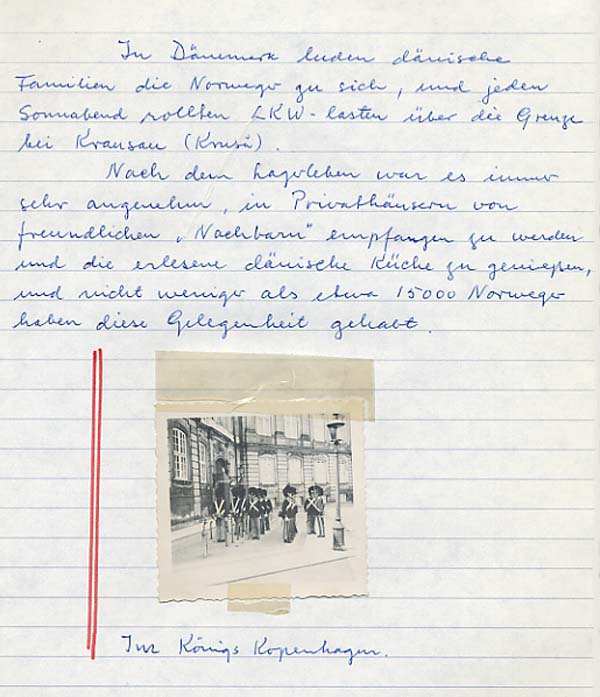 In Dänemark luden dänische
Familien die Norweger zu sich, und jeden
Sonnabend rollten LKW-lasten über die Grenze
bei Krausau (Kruså).
Nach dem Lagerleben war es immer
sehr angenehm, in Privathäusern von
freundlichen „Nachbarn" empfangen zu werden
und die erlesene dänische Küche zu genießen,
und nicht weniger als etwa 15000 Norweger
haben diese Gelegenheit gehabt.
Im Königs Kopenhagen.